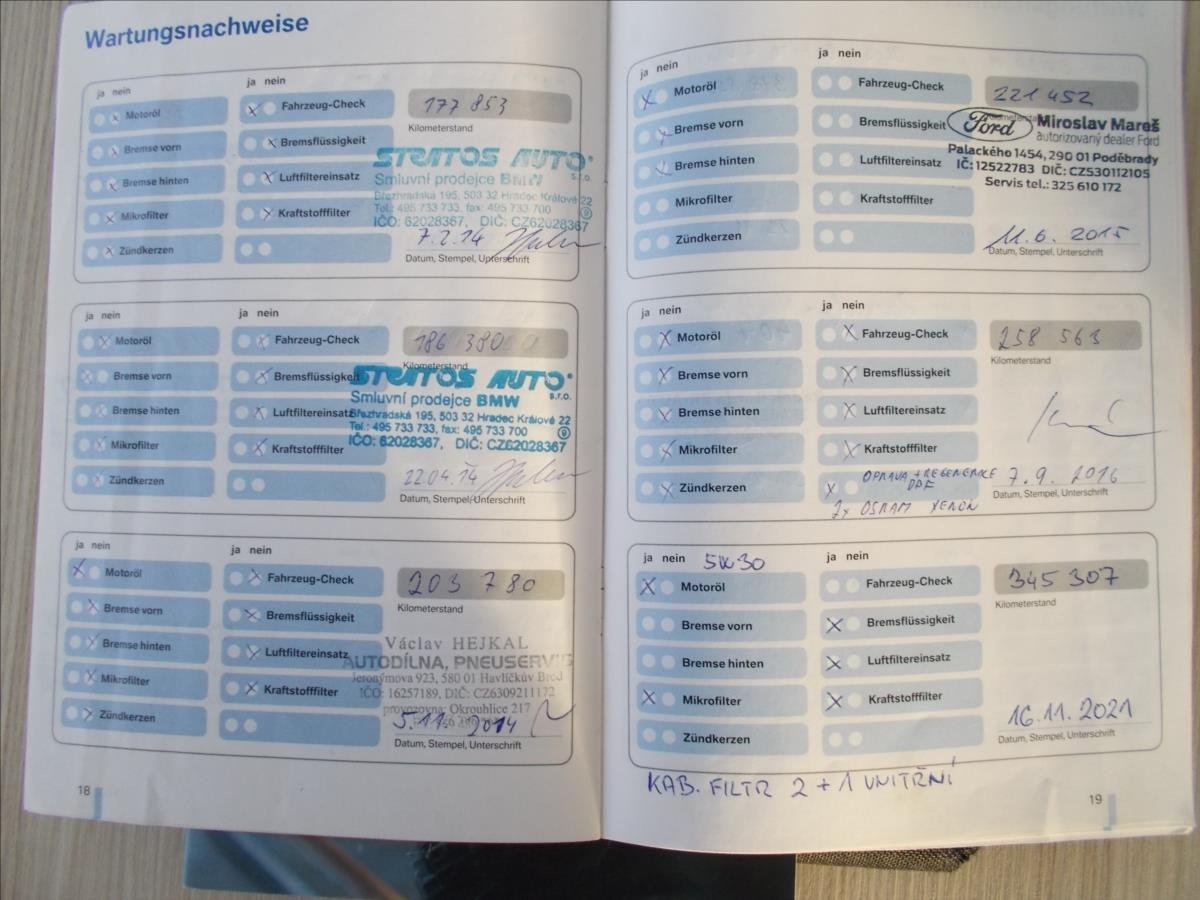 Wartungsnachweise
ja nein
ja nein
Motoröl
Bremse vorn
Bremse hinten
Mikrofilter
Zündkerzen
Fahrzeug-Check
Bremsflüssigkeit
Luftfiltereinsatz
Kraftstofffilter
177 853
Kilometerstand
STRATOS AUTO s.r.o.
Smluvní prodejce BMW
Březhradská 195, 503 32 Hradec Králové 22
Tel.: 495 733 733, fax: 495 733 700
IČO: 62028367, DIČ: CZ62028367
7.2.14
Datum, Stempel, Unterschrift
ja nein
ja nein
Motoröl
Bremse vorn
Bremse hinten
Mikrofilter
Zündkerzen
Fahrzeug-Check
Bremsflüssigkeit
Luftfiltereinsatz
Kraftstofffilter
186 380
Kilometerstand
STRATOS AUTO s.r.o.
Smluvní prodejce BMW
Březhradská 195, 503 32 Hradec Králové 22
Tel.: 495 733 733, fax: 495 733 700
IČO: 62028367, DIČ: CZ62028367
22.04.14
Datum, Stempel, Unterschrift
ja nein
ja nein
Motoröl
Bremse vorn
Bremse hinten
Mikrofilter
Zündkerzen
Fahrzeug-Check
Bremsflüssigkeit
Luftfiltereinsatz
Kraftstofffilter
203 780
Kilometerstand
Václav HEJKAL
AUTODÍLNA, PNEUSERVIS
Jeronýmova 923, 580 01 Havlíčkův Brod
IČO: 16257189, DIČ: CZ6309211172
provozovna: Okrouhlice 217
5.11. 2014
Datum, Stempel, Unterschrift
18
ja nein
ja nein
Motoröl
Bremse vorn
Bremse hinten
Mikrofilter
Zündkerzen
Fahrzeug-Check
Bremsflüssigkeit
Luftfiltereinsatz
Kraftstofffilter
221 452
Kilometerstand
Ford
Miroslav Mareš
autorizovaný dealer Ford
Palackého 1454, 290 01 Poděbrady
IČ: 12522783 DIČ: CZ530112105
Servis tel.: 325 610 172
11.6. 2015
Datum, Stempel, Unterschrift
ja nein
ja nein
Motoröl
Bremse vorn
Bremse hinten
Mikrofilter
Zündkerzen
Fahrzeug-Check
Bremsflüssigkeit
Luftfiltereinsatz
Kraftstofffilter
OPRAVA + REGENERACE
DPF
OSRAM XENON
258 563
Kilometerstand
7.9. 2016
Datum, Stempel, Unterschrift
ja nein 5W30
ja nein
Motoröl
Bremse vorn
Bremse hinten
Mikrofilter
Zündkerzen
Fahrzeug-Check
Bremsflüssigkeit
Luftfiltereinsatz
Kraftstofffilter
345 307
Kilometerstand
16.11.2021
Datum, Stempel, Unterschrift
KAB. FILTR 2 + 1 VNITŘNÍ
19